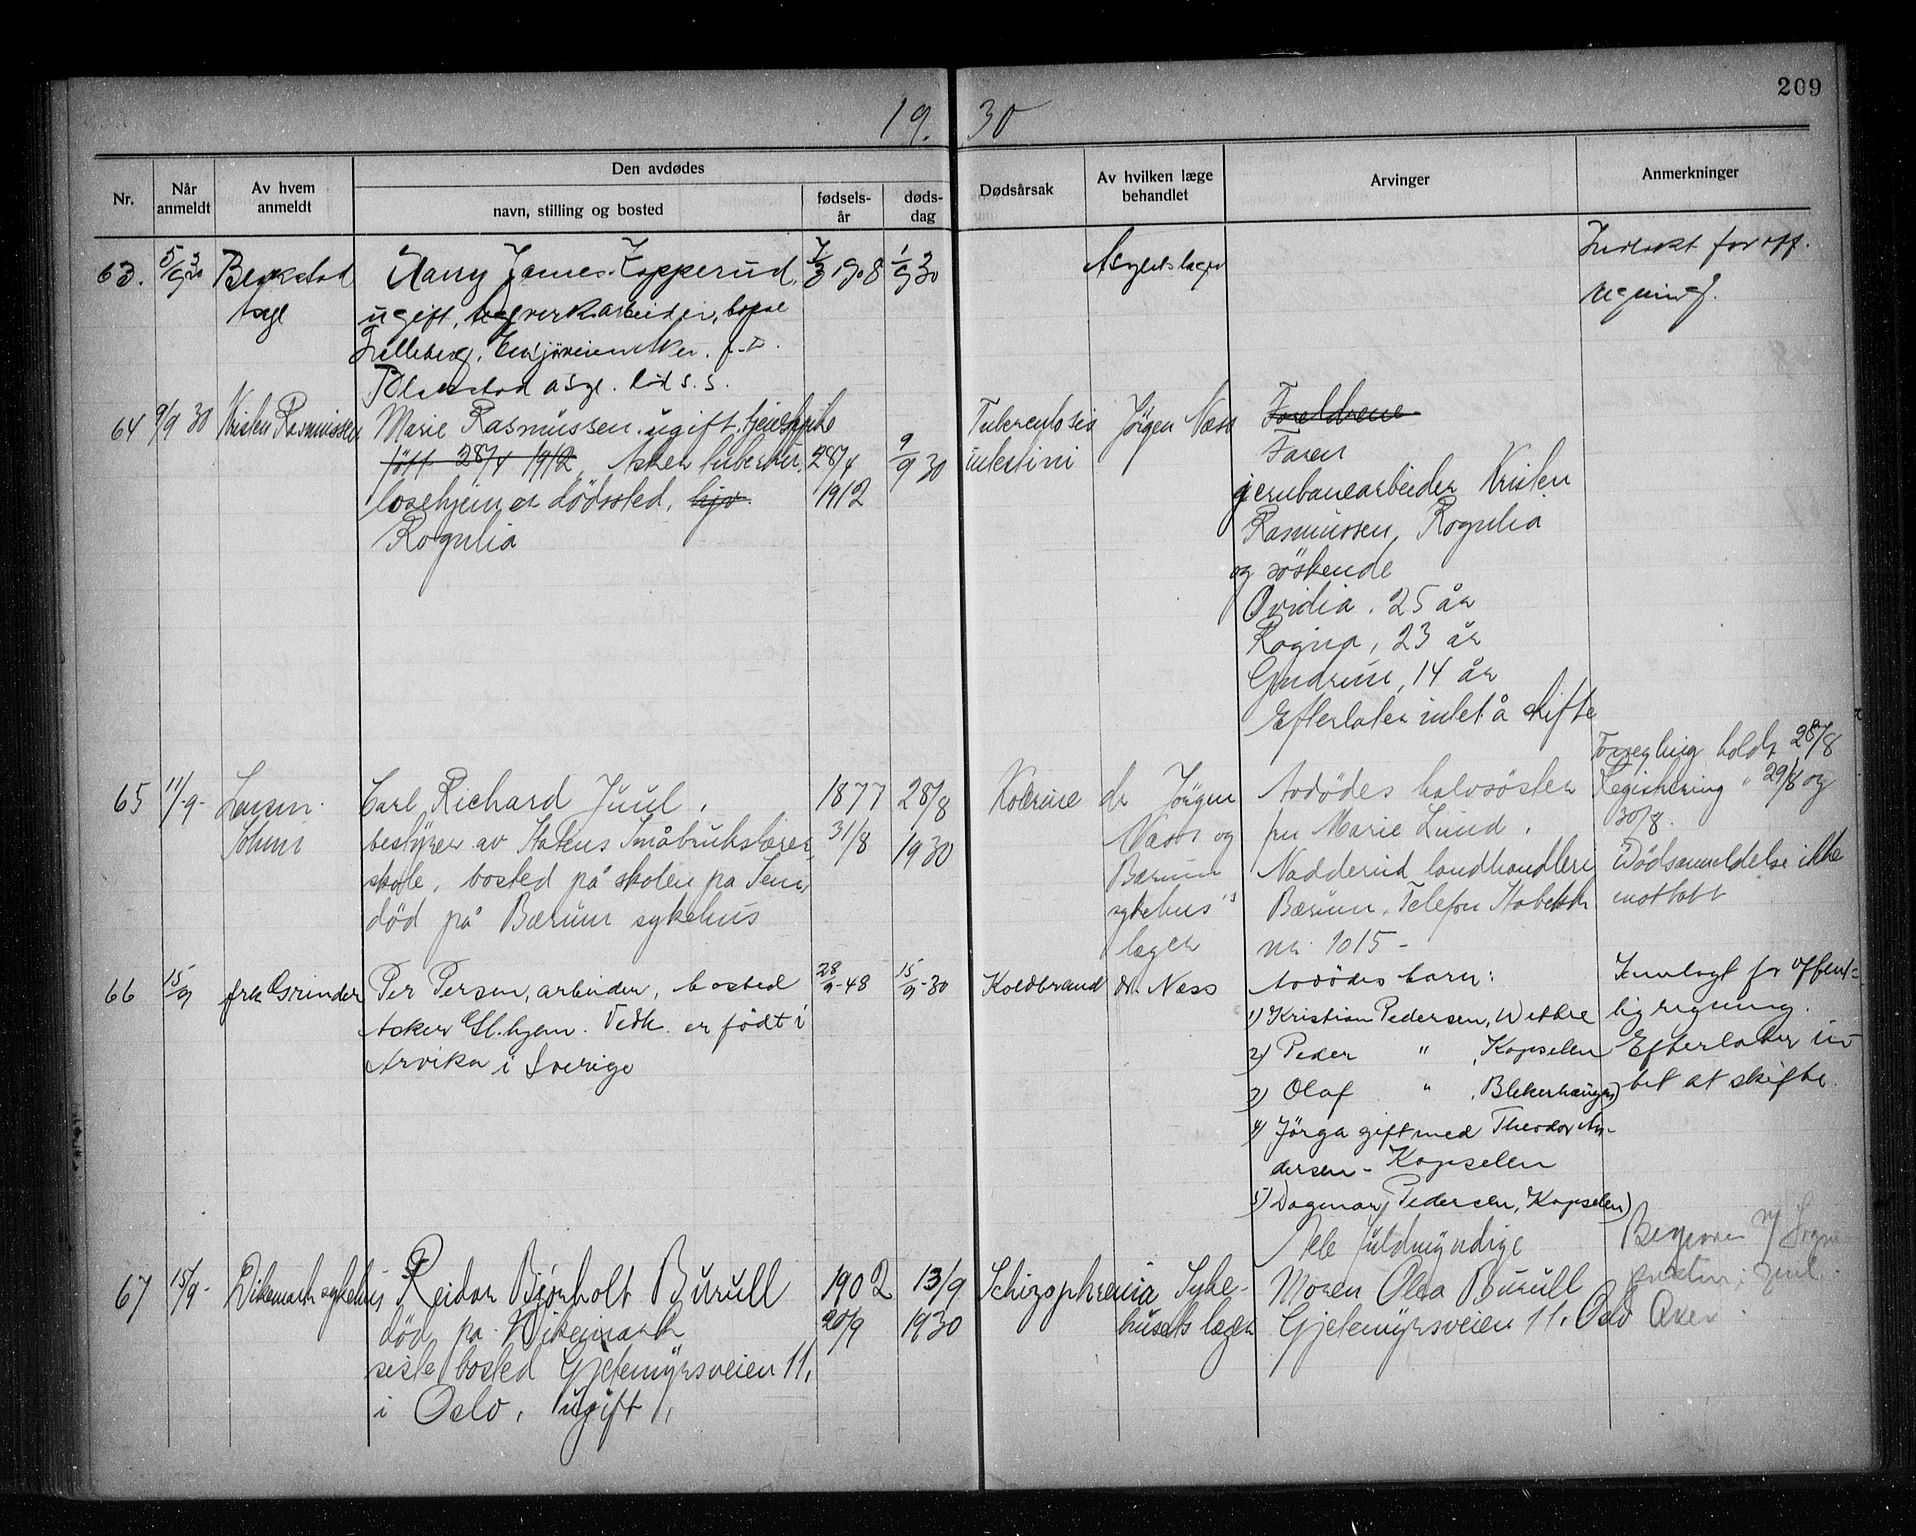 209
19. 30
Nr.
Når anmeldt
Av hvem anmeldt
Den avdødes
navn, stilling og bosted
fødsels-år
døds-dag
Dødsårsak
Av hvilken læge behandlet
Arvinger
Anmerkninger
63.
asyl
Harry James Zopperud
ugift, arbeider,
asyl.
1908
1/9 30
Asylets læger
Innlakt for off.
regning.
64
9/9 30
Kristen Rasmussen
Marie Rasmussen, ugift,
født 28/4 1912, Asker tuberku-
losehjem er dødssted, hjv.
Rognlia
28/4
1912
9/9 30
Tuberculosis
intestini
Jörgen Næss
Foreldrene
Faren
jernbanearbeider Kristen
Rasmussen, Rognlia
og søskende
Ovidia, 25 år
Ragna, 23 år
Gudrun, 14 år
Efterlater intet å skifte
65
11/-9-
Carl Richard Juul,
bestyrer av Statens Småbrukslærer-
skole, bosted på skolen på Sem,
død på Bærum sykehus
1877
31/8
28/8
1930
dr Jörgen
Næss og
Bærum
sykehus's
læger
Avdødes halvsøster
fru Marie Lund,
Nadderud landhandleri
Bærum, Telefon Stabekk
nr. 1015-
Forsegling holdt 28/8
Registrering " 29/8 og
30/8.
Dødsanmeldelse ikke
mottatt
66
15/9
frk Grinder
Per Persen, arbeider, bosted
Asker Gl.hjem. Vedk. er født i
Arvika i Sverige
28/9-48
15/9-30
Koldbrand
dr. Næss
Avdødes barn:
1) Kristian Pedersen, Wettre
2) Peder " , Kopselen
3) Olaf " , Blekerhaugen)
4) Jörga gift med Theodor An-
dersen - Kopselen
5) Dagmar Pedersen, Kopselen)
Alle fuldmyndige
Innlagt for offent-
lig regning.
Efterlater in-
tet at skifte.
67
15/9-
Dikemark sykehus
Reidar Bjønholt Burull
død på Dikemark
siste bosted Gjetemyrsveien 11,
i Oslo, ugift,
1902
20/9
13/9
1930
Schizophrenia
Syke-
husets læger
Moren Olea Burull
Gjetemyrsveien 11. Oslo